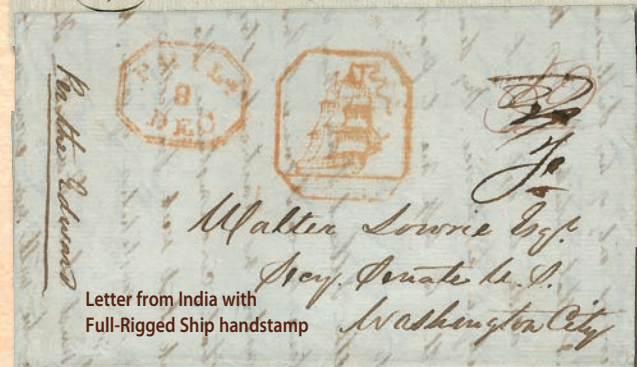 Per the Edward
PHILA
8
DEC
Walter Lowrie Esqr.
Secy. Senate U. S.
Washington City
Letter from India with
Full-Rigged Ship handstamp